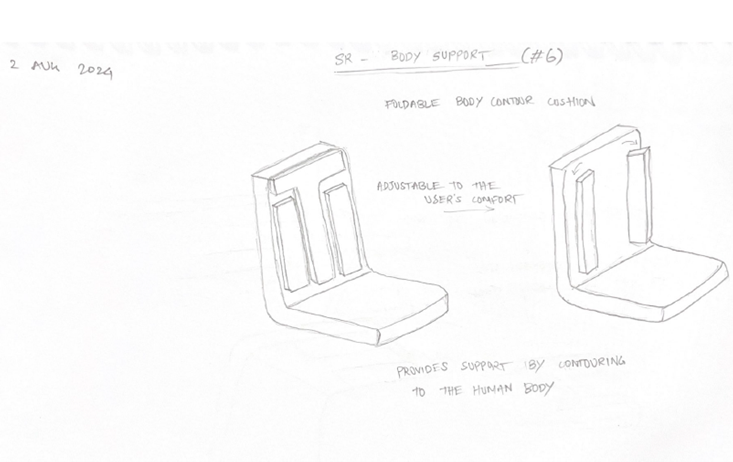 2 AUG 2024
SR - BODY SUPPORT (#6)
FOLDABLE BODY CONTOUR CUSHION
ADJUSTABLE TO THE
USER'S COMFORT
PROVIDES SUPPORT BY CONTOURING
TO THE HUMAN BODY